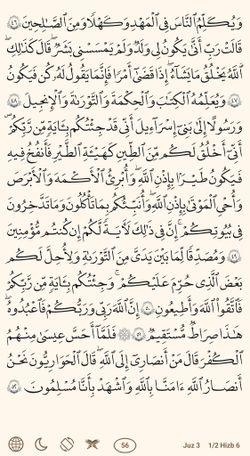 وَيُكَلِّمُ ٱلنَّاسَ فِى ٱلْمَهْدِ وَكَهْلًا وَمِنَ ٱلصَّٰلِحِينَ ٤٦
قَالَتْ رَبِّ أَنَّىٰ يَكُونُ لِى وَلَدٌ وَلَمْ يَمْسَسْنِى بَشَرٌ ۖ قَالَ كَذَٰلِكِ
ٱللَّهُ يَخْلُقُ مَا يَشَآءُ ۚ إِذَا قَضَىٰٓ أَمْرًا فَإِنَّمَا يَقُولُ لَهُۥ كُن فَيَكُونُ
٤٧ وَيُعَلِّمُهُ ٱلْكِتَٰبَ وَٱلْحِكْمَةَ وَٱلتَّوْرَىٰةَ وَٱلْإِنجِيلَ ٤٨
وَرَسُولًا إِلَىٰ بَنِىٓ إِسْرَٰٓءِيلَ أَنِّى قَدْ جِئْتُكُم بِـَٔايَةٍ مِّن رَّبِّكُمْ ۖ
أَنِّىٓ أَخْلُقُ لَكُم مِّنَ ٱلطِّينِ كَهَيْـَٔةِ ٱلطَّيْرِ فَأَنفُخُ فِيهِ
فَيَكُونُ طَيْرًۢا بِإِذْنِ ٱللَّهِ ۖ وَأُبْرِئُ ٱلْأَكْمَهَ وَٱلْأَبْرَصَ
وَأُحْىِ ٱلْمَوْتَىٰ بِإِذْنِ ٱللَّهِ ۖ وَأُنَبِّئُكُم بِمَا تَأْكُلُونَ وَمَا تَدَّخِرُونَ
فِى بُيُوتِكُمْ ۚ إِنَّ فِى ذَٰلِكَ لَـَٔايَةً لَّكُمْ إِن كُنتُم مُّؤْمِنِينَ
٤٩ وَمُصَدِّقًا لِّمَا بَيْنَ يَدَىَّ مِنَ ٱلتَّوْرَىٰةِ وَلِأُحِلَّ لَكُم
بَعْضَ ٱلَّذِى حُرِّمَ عَلَيْكُمْ ۚ وَجِئْتُكُم بِـَٔايَةٍ مِّن رَّبِّكُمْ
فَٱتَّقُوا۟ ٱللَّهَ وَأَطِيعُونِ ٥٠ إِنَّ ٱللَّهَ رَبِّى وَرَبُّكُمْ فَٱعْبُدُوهُ ۗ
هَٰذَا صِرَٰطٌ مُّسْتَقِيمٌ ٥١ ۞ فَلَمَّآ أَحَسَّ عِيسَىٰ مِنْهُمُ
ٱلْكُفْرَ قَالَ مَنْ أَنصَارِىٓ إِلَى ٱللَّهِ ۖ قَالَ ٱلْحَوَارِيُّونَ نَحْنُ
أَنصَارُ ٱللَّهِ ءَامَنَّا بِٱللَّهِ وَٱشْهَدْ بِأَنَّا مُسْلِمُونَ ٥٢
56 Juz 3 1/2 Hizb 6